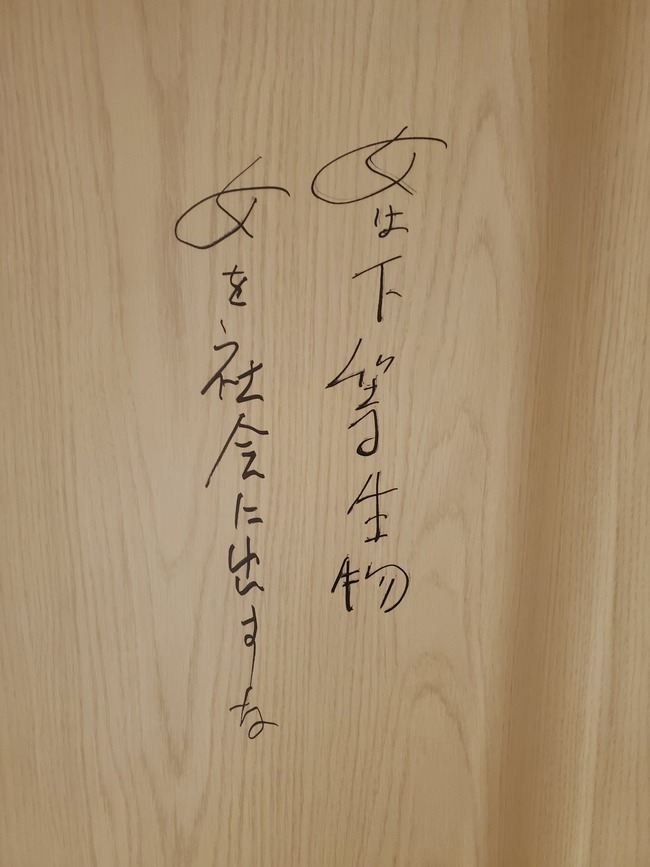 女は下等生物
女を社会に出すな